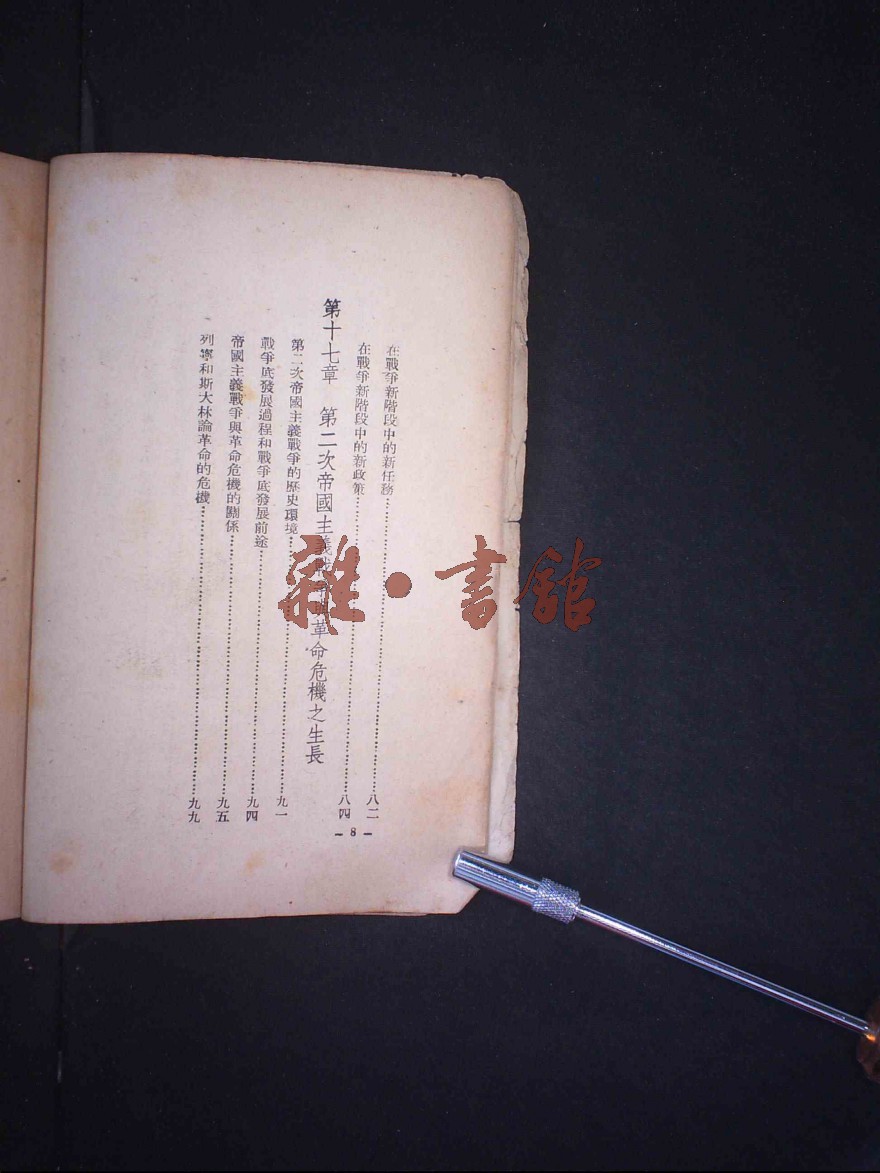 在戰爭新階段中的新任務……八二
在戰爭新階段中的新政策……八四
第十七章 第二次帝國主義戰爭與革命危機之生長
第二次帝國主義戰爭的歷史環境……九一
戰爭底發展過程和戰爭底發展前途……九四
帝國主義戰爭與革命危機的關係……九五
列寧和斯大林論革命的危機……九九
— 8 —
雜·書館